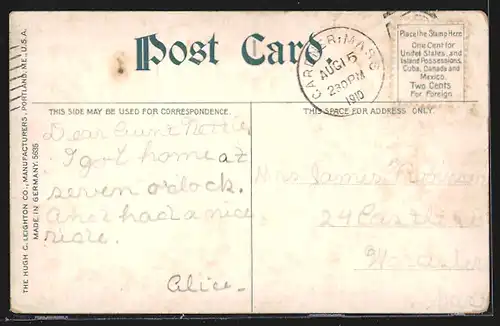 Post Card
GARDNER, MASS.
AUG 15
230 PM
1910
Place the Stamp Here
One Cent for
United States, and
Island Possessions,
Cuba, Canada and
Mexico.
Two Cents
For Foreign
THIS SIDE MAY BE USED FOR CORRESPONDENCE.
THIS SPACE FOR ADDRESS ONLY.
THE HUGH C. LEIGHTON CO., MANUFACTURERS, PORTLAND, ME., U.S.A.
MADE IN GERMANY. 5635
Dear Aunt Nottie
I got home at
seven o'clock.
And had a nice
ride.
Alice-
Mrs James
24